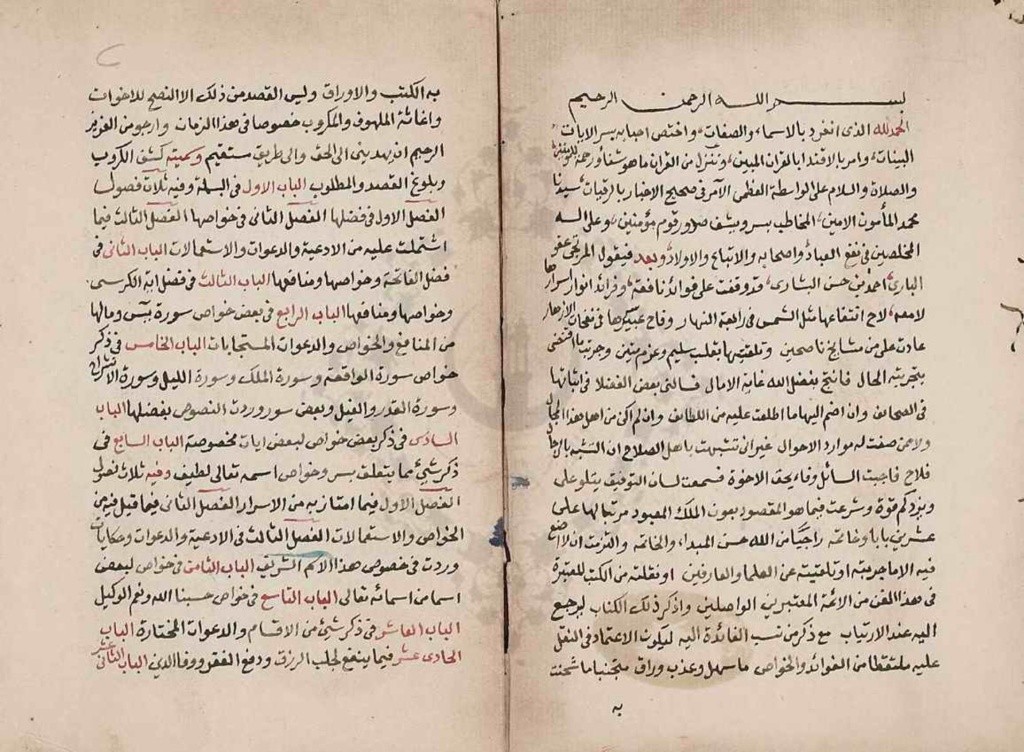 بسم الله الرحمن الرحيم
الحمد لله الذى انفرد بالاسماء والصفات واختص احبابه بسر الايات
البينات وامر بالاقتدا بالقران المبين وننزل من القران ما هو شفا ورحمة للمؤمنين
والصلاة والسلام على الواسطة العظمى الآمر فى صحيح الاخبار بالرقيات سيدنا
محمد المأمون الامين المخاطب بسر ويشف صدور قوم مؤمنين وعلى اله
المخلصين فى نفع العباد واصحابه والاتباع والاولاد وبعد فيقول المرتجى عفو
البارى احمد بن حسن البشارى قد وقفت على فوائد نافعة وفرائد انوار اسرارها
لامعه لاح انتفاعها مثل الشمس فى رابعة النهار وفاح عبيرها فى نفحات الازهار
عادت على من مشايخ ناصحين وتلقيتها بقلب سليم وعزم متين وجربتها فاقتضى
بتجربته الحال فانتج بفضل الله غاية الامال فسالنى بعض الفضلا فى اثباتها
فى الصحائف وان اضم اليها ما اطلعت عليه من اللطائف وان لم اكن من اهل هذا المجال
ولا ممن صفت له موارد الاحوال غير انى تشبهت باهل الصلاح ان التشبه بالرجال
فلاح فاجبت السائل وفاء بحق الاخوة فسمعت لسان التوفيق يتلو على
ويزدكم قوة وشرعت فيما هو المقصود بعون الملك المعبود مرتبا لها على
عشرين بابا وخاتمه راجيا من الله حسن المبداء والخاتمه والتزمت ان لا اضع
فيه الا ما جربته او تلقيته عن العلما والعارفين او نقلته من الكتب المعتبرة
فى هذا الفن من الائمة المعتبرين الواصلين واذكر ذلك الكتاب ليرجع
اليه عند الارتياب مع ذكر من نسب الفائدة اليه ليكون الاعتماد فى النقل
عليه ملتقطا من الفوائد والخواص ما سهل وعذب وراق متجنبا ما شحنت
به
به الكتب والاوراق وليس القصد من ذلك الا النصح للاخوان
واغاثة الملهوف والمكروب خصوصا فى هذا الزمان وارجو من العزيز
الرحيم ان يهدينى الى الحق والى طريق مستقيم وسميته كشف الكروب
وبلوغ القصد والمطلوب الباب الاول فى البسملة وفيه ثلاث فصول
الفصل الاول فى فضلها الفصل الثانى فى خواصها الفصل الثالث فيما
اشتملت عليه من الادعية والدعوات والاستعمالات الباب الثانى فى
فضل الفاتحة وخواصها ومنافعها الباب الثالث فى فضل اية الكرسى
وخواصها ومنافعها الباب الرابع فى بعض خواص سورة يس ومالها
من المنافع والخواص والدعوات المستجابات الباب الخامس فى ذكر
خواص سورة الواقعة وسورة الملك وسورة الليل وسورة الانشراح
وسورة القدر والفيل وبعض سور وردت النصوص بفضلها الباب
السادس فى ذكر بعض خواص لبعض ايات مخصوصة الباب السابع فى
ذكر شئ مما يتعلق بسر وخواص اسمه تعالى لطيف وفيه ثلاث فصول
الفصل الاول فيما امتاز به من الاسرار الفصل الثانى فيما قيل فيه من
الخواص والاستعمالات الفصل الثالث فى الادعية والدعوات وحكايات
وردت فى خصوص هذا الاسم الشريف الباب الثامن فى خواص لبعض
اسما من اسمائه تعالى الباب التاسع فى خواص حسبنا الله ونعم الوكيل
الباب العاشر فى ذكر شئ من الاقسام والدعوات المختارة الباب
الحادى عشر فيما ينفع لجلب الرزق ودفع الفقر ووفا الدين الباب الثانى عشر